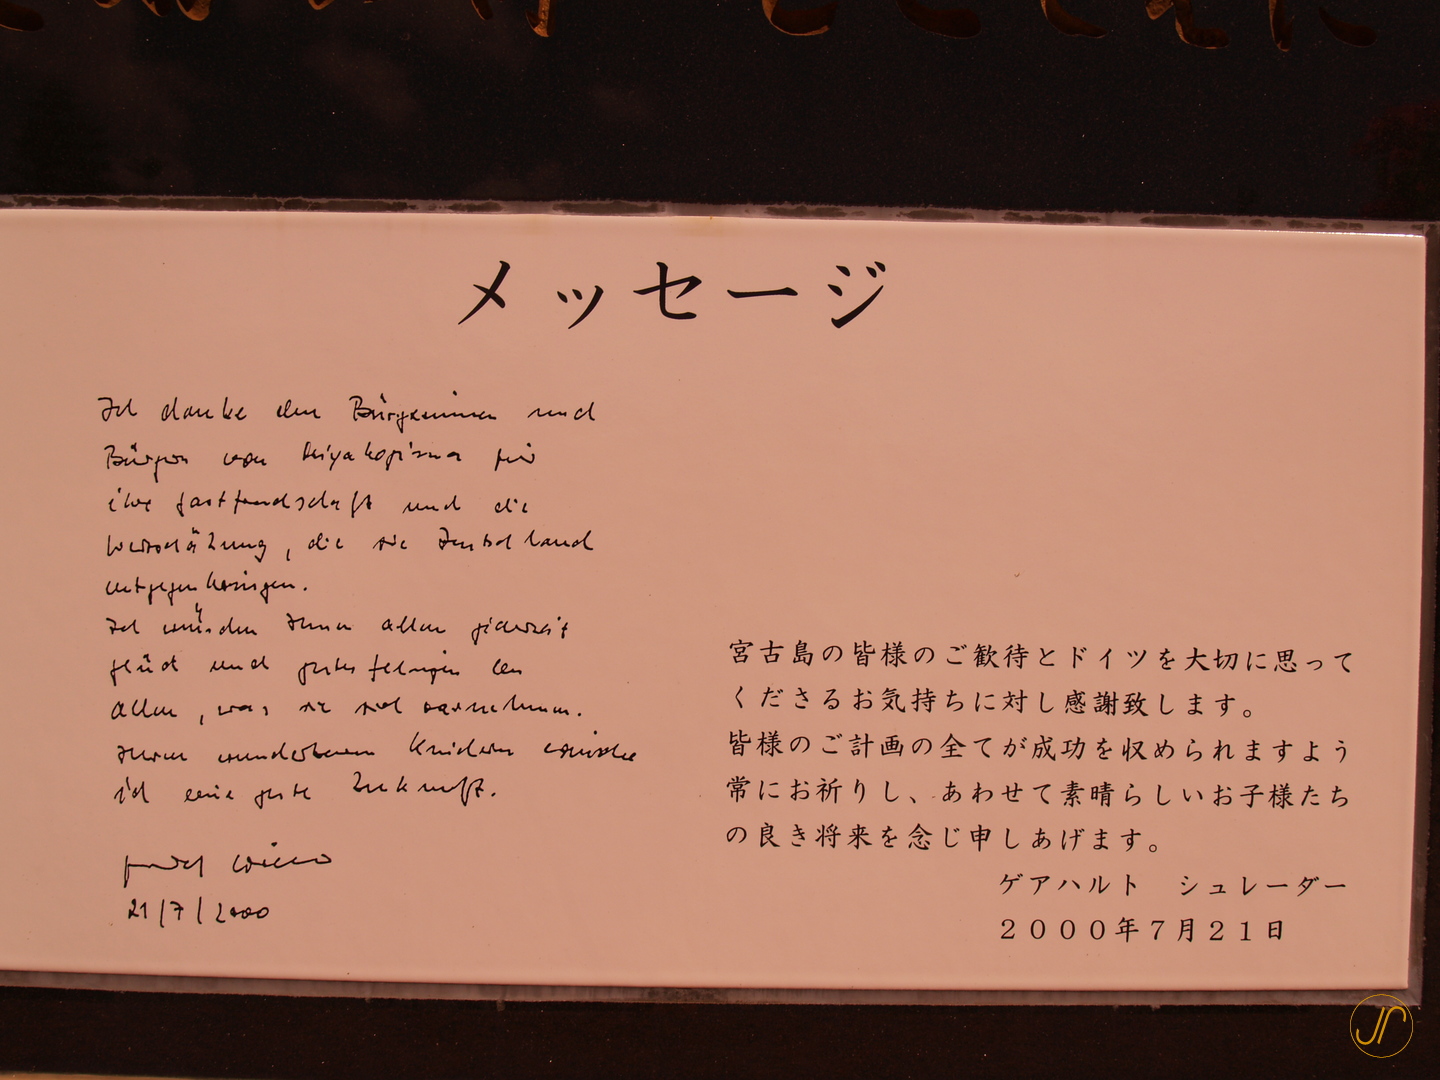 メッセージ
Ich danke den Bürgerinnen und
Bürgern von Miyakojima für
ihre Gastfreundschaft und die
Wertschätzung, die sie Deutschland
entgegenbringen.
Ich wünsche Ihnen allen jederzeit
Glück und gutes Gelingen bei
allem, was sie sich vornehmen.
Ihren wunderbaren Kindern wünsche
ich eine gute Zukunft.
21/7/2000
宮古島の皆様のご歓待とドイツを大切に思って
くださるお気持ちに対し感謝致します。
皆様のご計画の全てが成功を収められますよう
常にお祈りし、あわせて素晴らしいお子様たち
の良き将来を念じ申しあげます。
ゲアハルト　シュレーダー
２０００年７月２１日